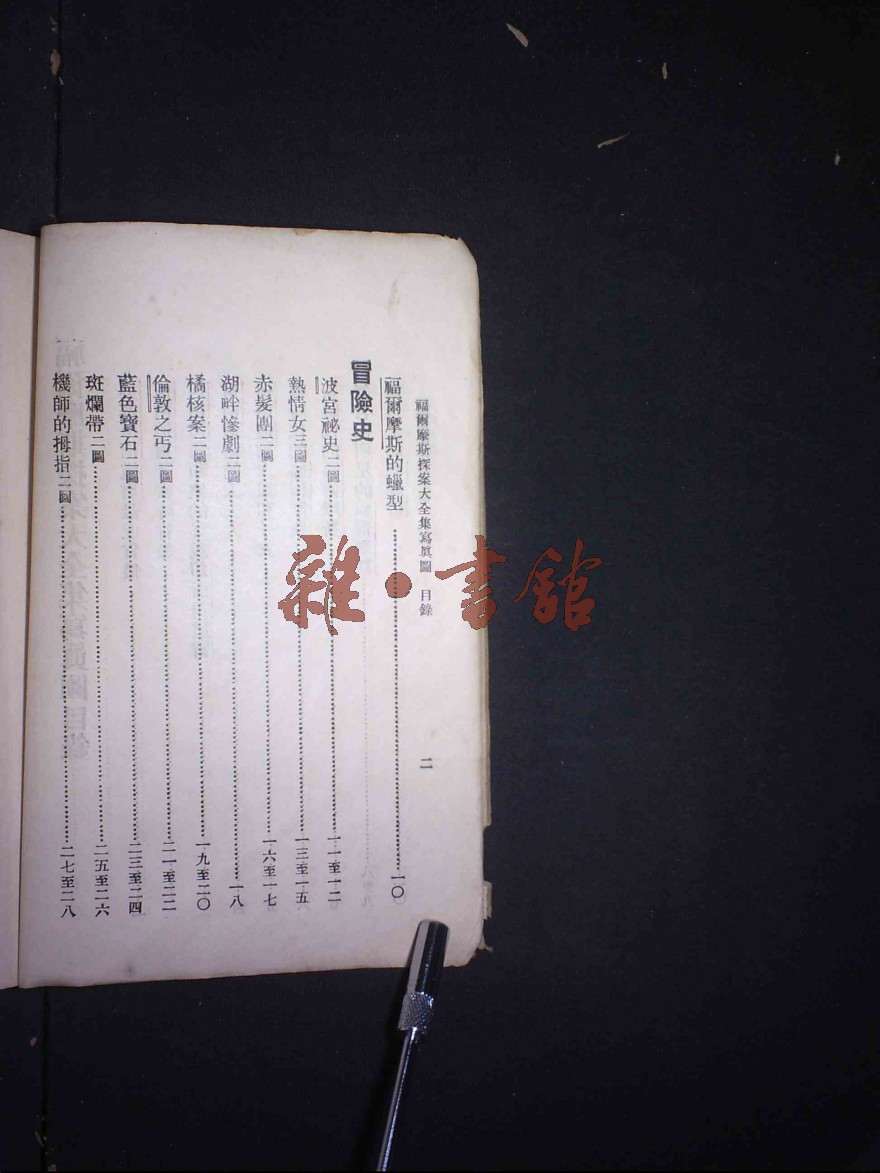 福爾摩斯探案大全集寫眞圖 目錄 二
福爾摩斯的蠟型………一〇
冒險史
波宮祕史二圖………一一至一二
熱情女三圖………一三至一五
赤髮團二圖………一六至一七
湖畔慘劇二圖………一八
橘核案二圖………一九至二〇
倫敦之丐二圖………二一至二二
藍色寶石二圖………二三至二四
斑爛帶二圖………二五至二六
機師的拇指二圖………二七至二八
雜·書舘